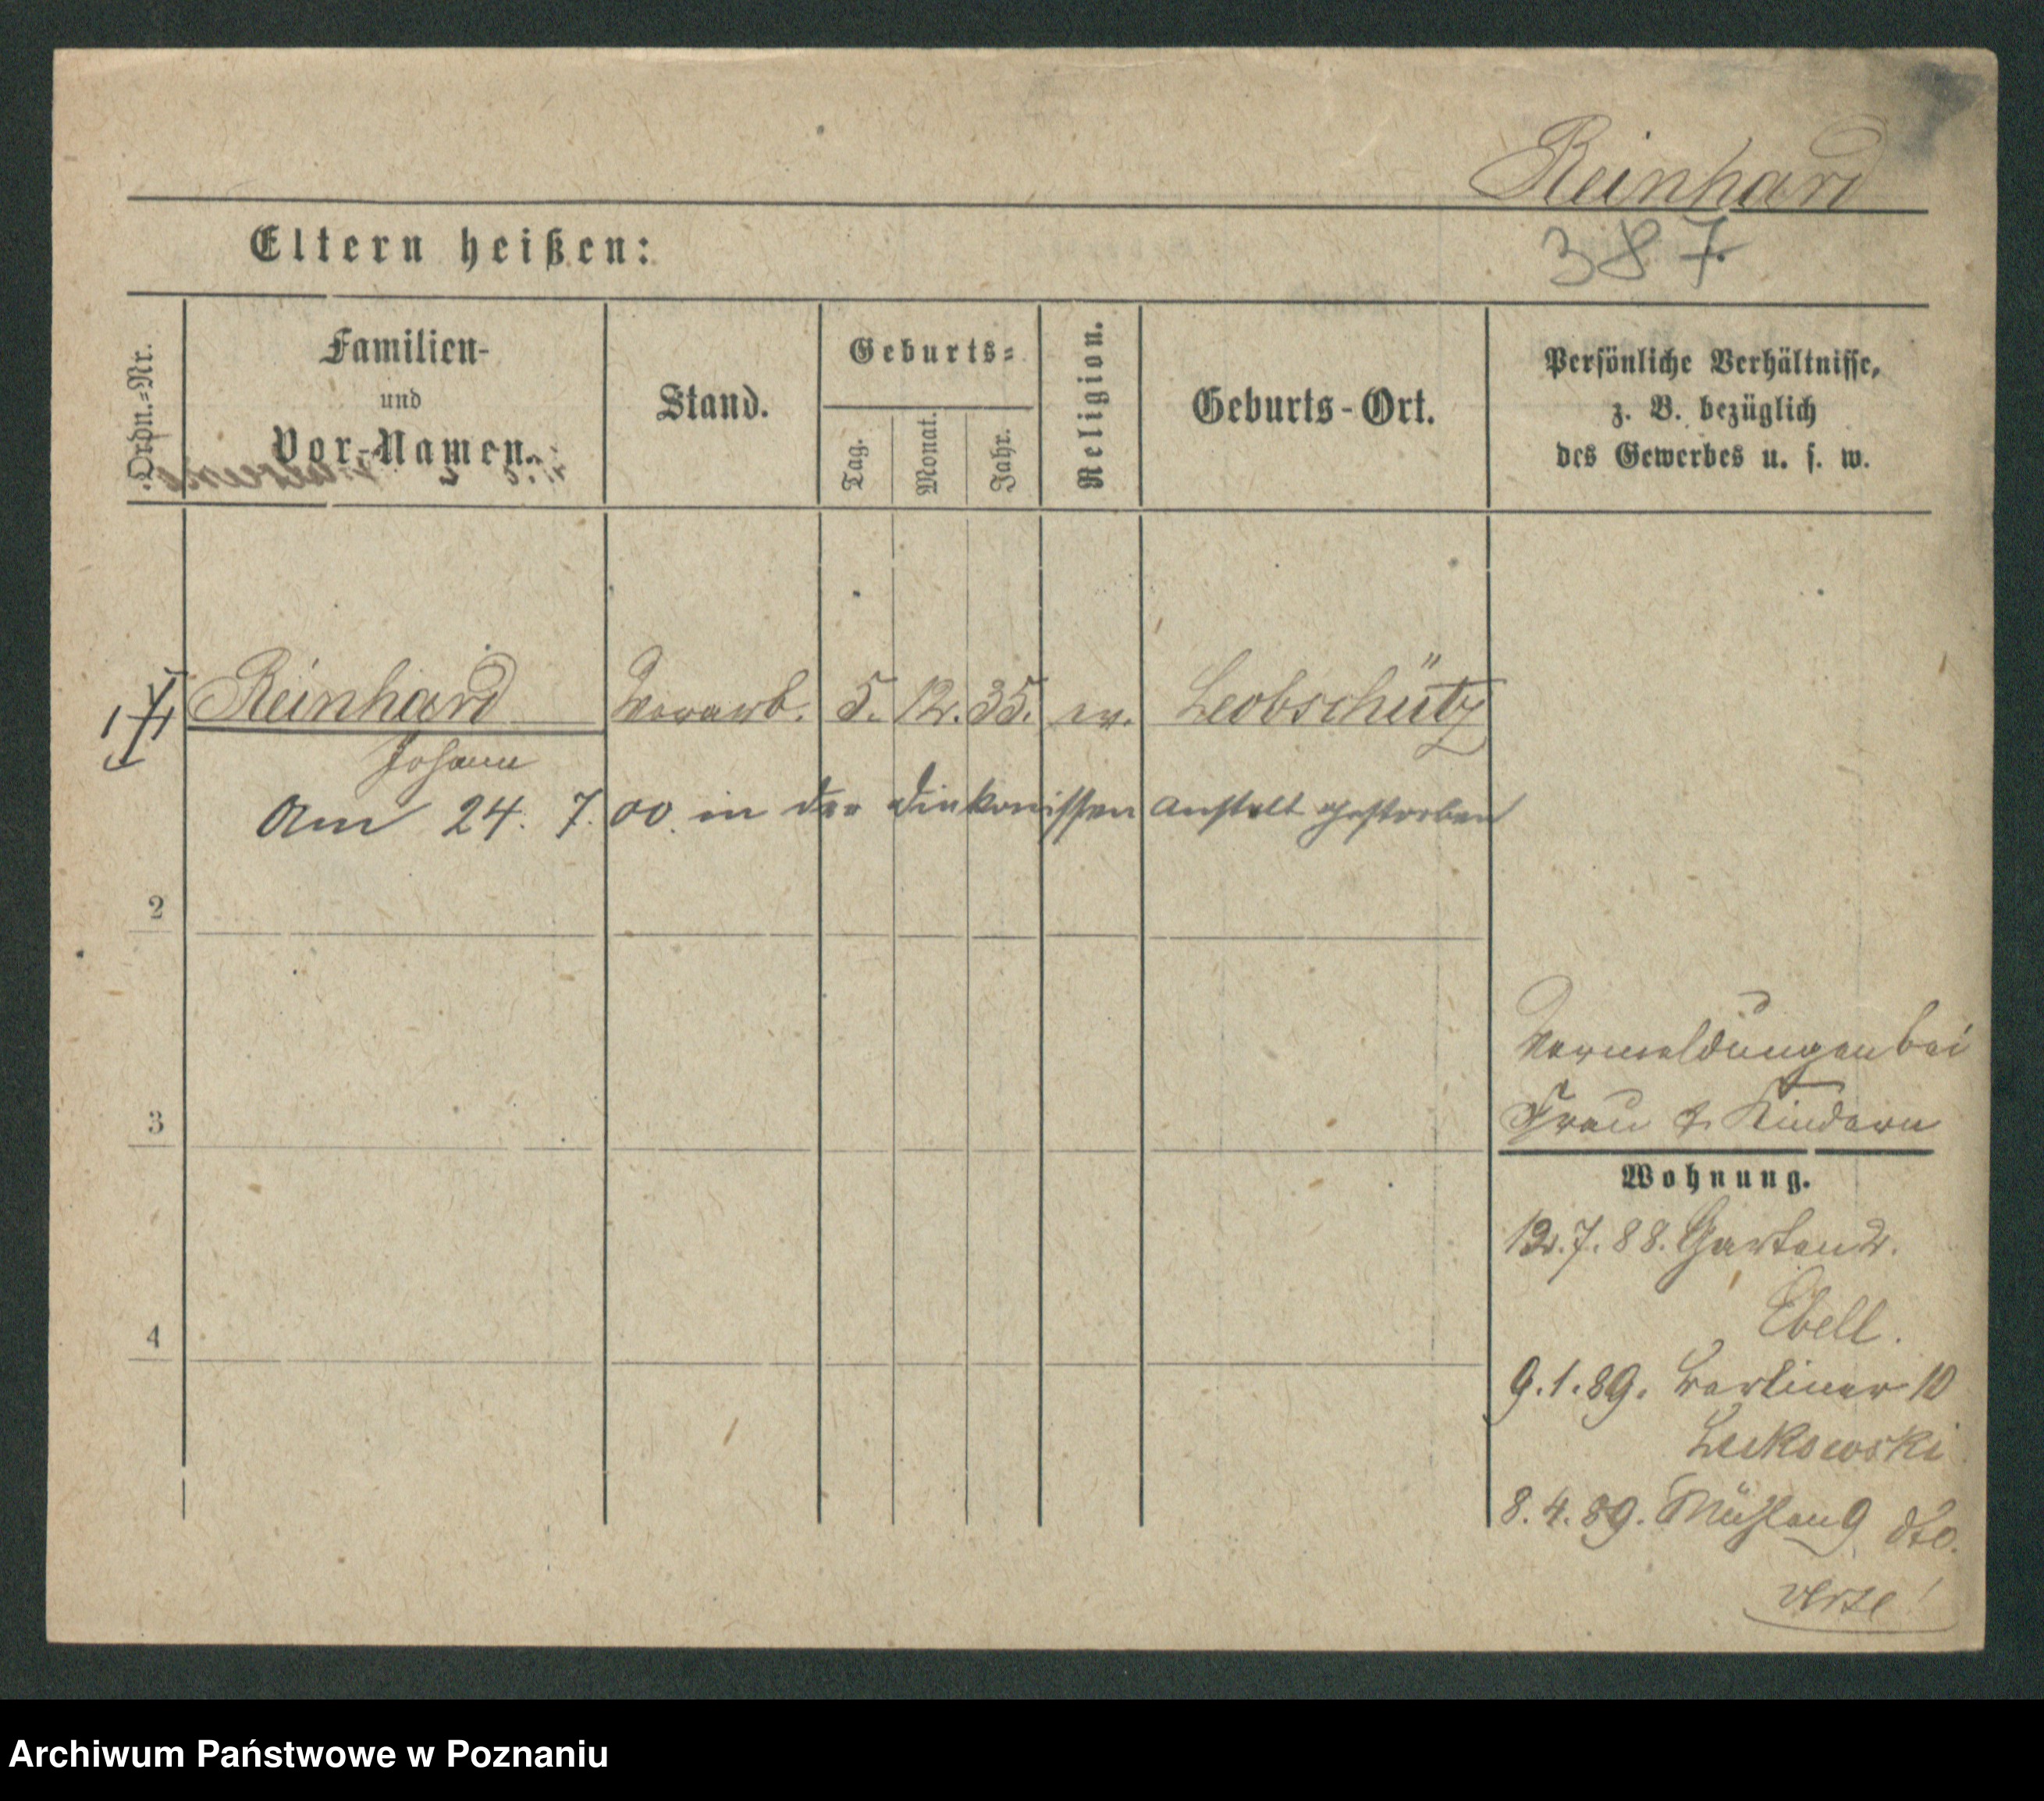 Reinhard
Eltern heißen:
387.
Ordn.-Nr.
Familien-
und
Vor-Namen.
Stand.
Geburts-
Tag.
Monat.
Jahr.
Religion.
Geburts-Ort.
Persönliche Verhältnisse,
z. B. bezüglich
des Gewerbes u. s. w.
1 Reinhard Vorarb. 5. 12. 35. ev. Leobschütz
Johann
Am 24. 7. 00. in der Diakonissen Anstalt gestorben
2
3
4
Vormeldungen bei
Frau & Kindern
Wohnung.
12.7.88. Garten 2.
Ebell.
9.1.89. Berliner 10
Lukowski
8.4.89. Mühlen 9 dto.
Archiwum Państwowe w Poznaniu